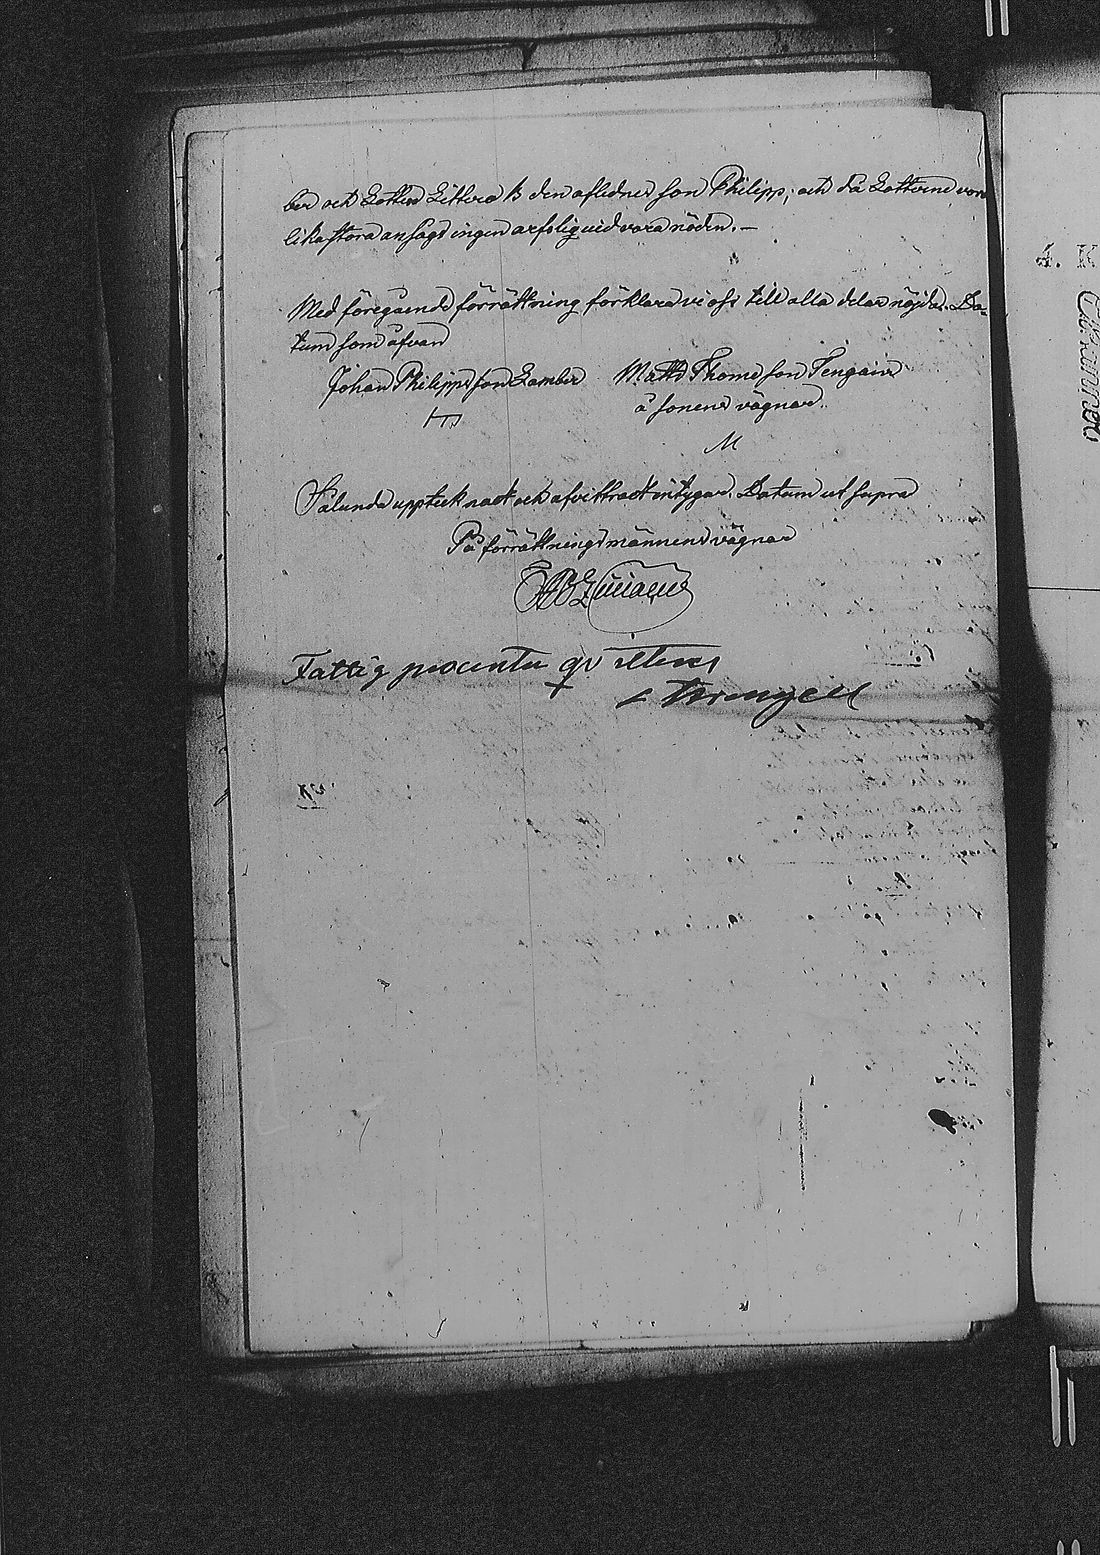 ber och Lotten Littera B den aflednes son Philipp; och då Lotterne voro
likastora ansågs ingen arfsliqvid vara nöden.—
Med föregående förrättning förklara vi oss till alla delar nöjda. Da-
tum som ofvan
Johan Philippsson Lamber Matts Thomesson Tengain
å sonens vägnar.
M
Sålunda upptecknadt och afvittradt intygar. Datum ut supra
På förrättningsmännens vägnar
Fattig procenten qvitteras
Wrangell
4. K